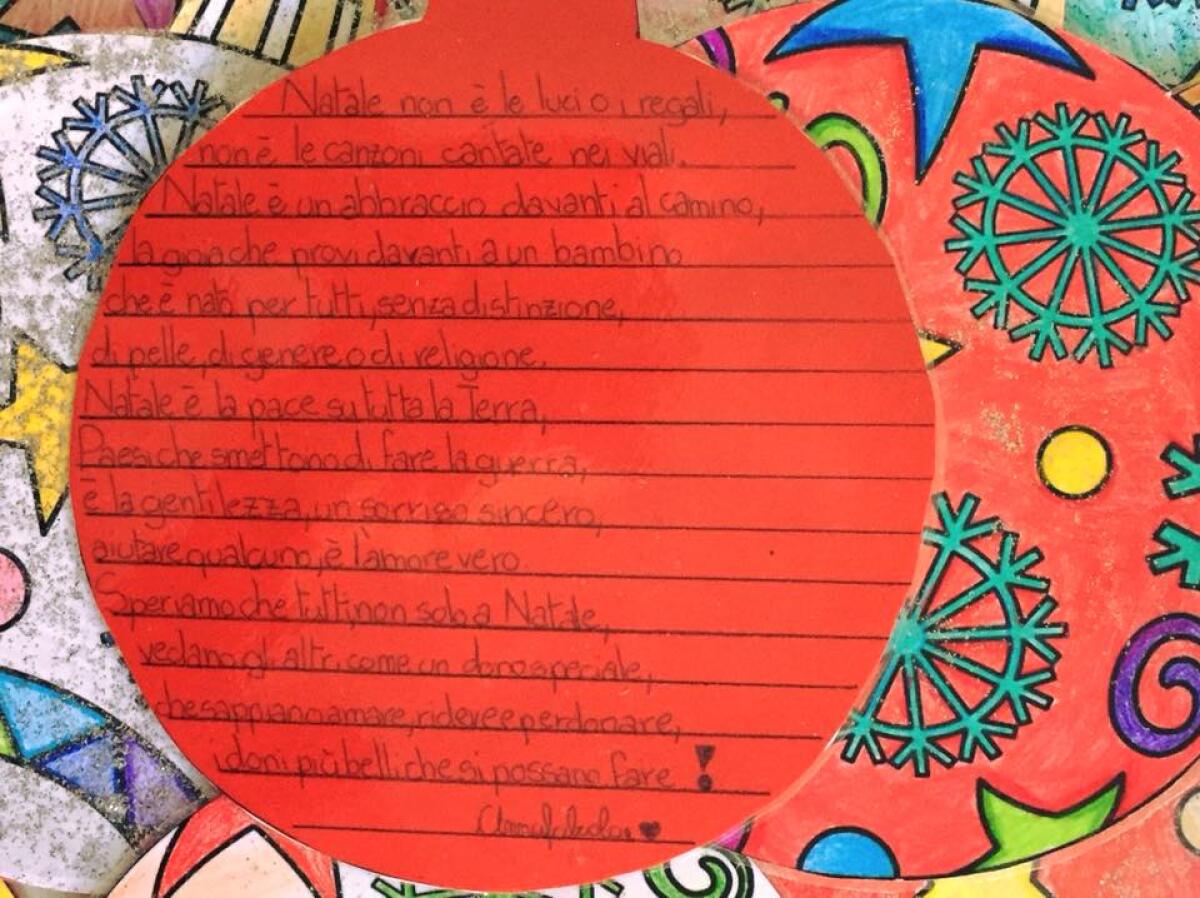 Natale non è le luci o i regali,
non è le canzoni cantate nei viali.
Natale è un abbraccio davanti al camino,
la gioia che provi davanti a un bambino
che è nato per tutti, senza distinzione,
di pelle, di genere o di religione.
Natale è la pace su tutta la Terra,
Paesi che smettono di fare la guerra,
è la gentilezza, un sorriso sincero,
aiutare qualcuno, è l'amore vero
Speriamo che tutti, non solo a Natale,
vedano gli altri come un dono speciale,
che sappiano amare, ridere e perdonare,
i doni più belli che si possano fare !